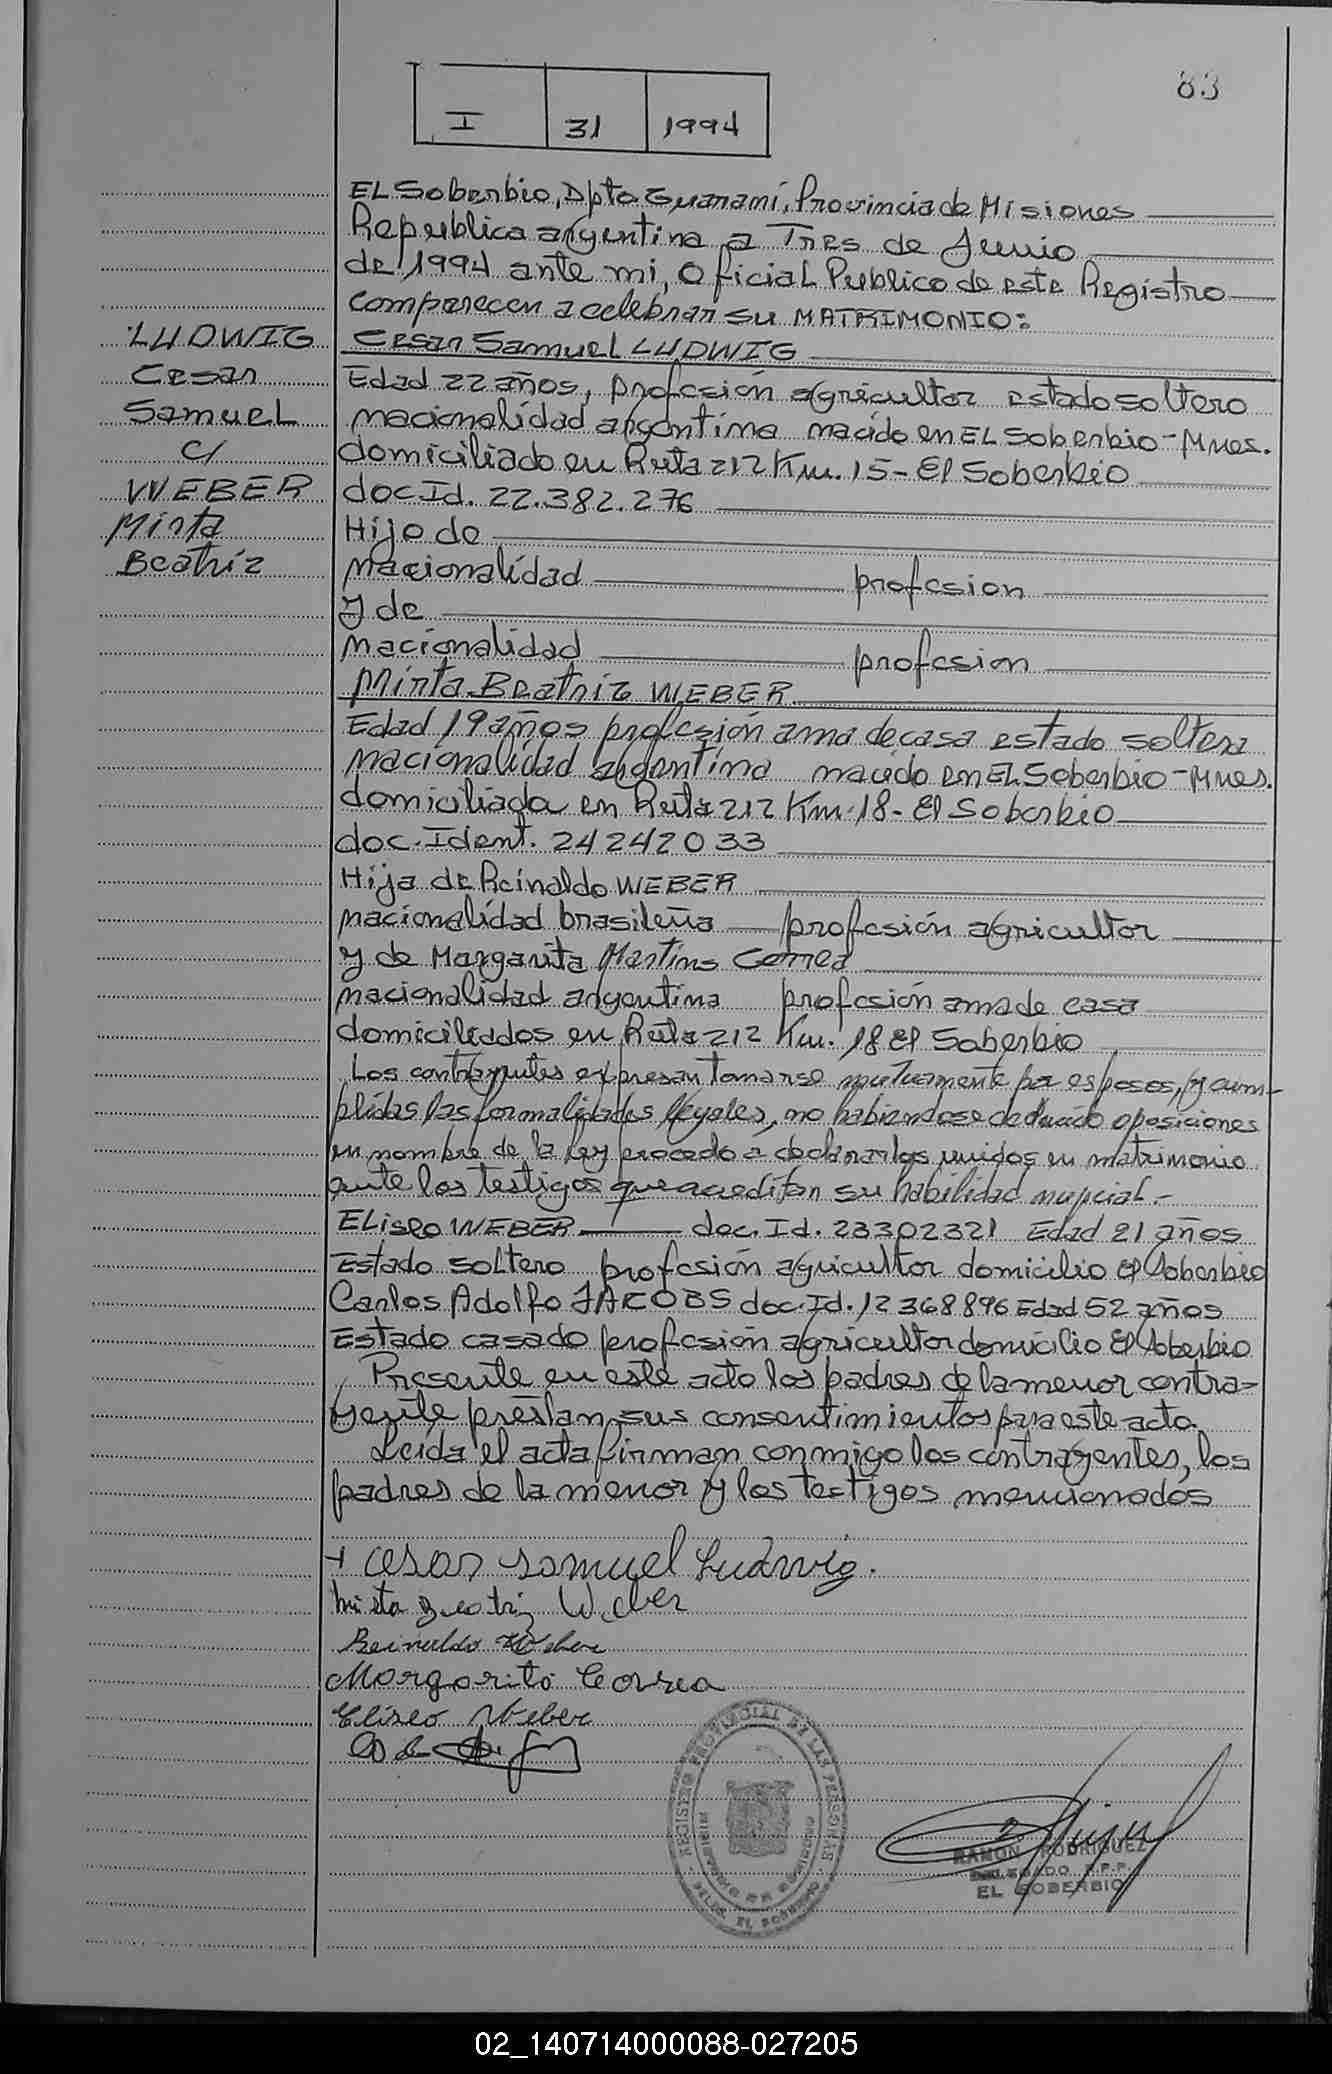 83
I 31 1994
El Soberbio, Dpto Guaraní, Provincia de Misiones
Republica argentina a Tres de Junio
de 1994 ante mi, Oficial Publico de este Registro
comparecen a celebrar su MATRIMONIO:
LUDWIG
Cesar
Samuel
c/
WEBER
Mirta
Beatriz
Cesar Samuel LUDWIG
Edad 22 años, profesión agricultor estado soltero
nacionalidad argentina nacido en El Soberbio - Mnes.
domiciliado en Ruta 212 Km. 15 - El Soberbio
doc Id. 22.382.276
Hijo de
nacionalidad profesion
y de
nacionalidad profesion
Mirta Beatriz WEBER
Edad 19 años profesión ama de casa estado soltera
nacionalidad argentina nacido en El Soberbio - Mnes.
domiciliada en Ruta 212 Km. 18 - El Soberbio
doc. Ident. 24242033
Hija de Reinaldo WEBER
nacionalidad brasileña profesión agricultor
y de Margarita Martins Correa
nacionalidad argentina profesión ama de casa
domiciliados en Ruta 212 Km. 18 El Soberbio
Los contrayentes expresan tomarse mutuamente por esposos, y cum-
plidas las formalidades legales, no habiendose deducido oposiciones
en nombre de la ley procedo a declararlos unidos en matrimonio
ante los testigos que acreditan su habilidad nupcial.-
Eliseo WEBER doc. Id. 23302321 Edad 21 años
Estado soltero profesión agricultor domicilio El Soberbio
Carlos Adolfo JACOBS doc. Id. 12368896 Edad 52 años
Estado casado profesión agricultor domicilio El Soberbio
Presente en este acto los padres de la menor contra-
yente prestan sus consentimientos para este acto.
Leída el acta firman conmigo los contrayentes, los
padres de la menor y los testigos mencionados
+ Cesar Samuel Ludwig.
Mirta Beatriz Weber
Reinaldo Weber
Margarita Correa
Eliseo Weber
REGISTRO PROVINCIAL DE LAS PERSONAS
DELEG. EL SOBERBIO
RAMON RODRIGUEZ
DELEGADO R.P.P.
EL SOBERBIO
02_140714000088-027205